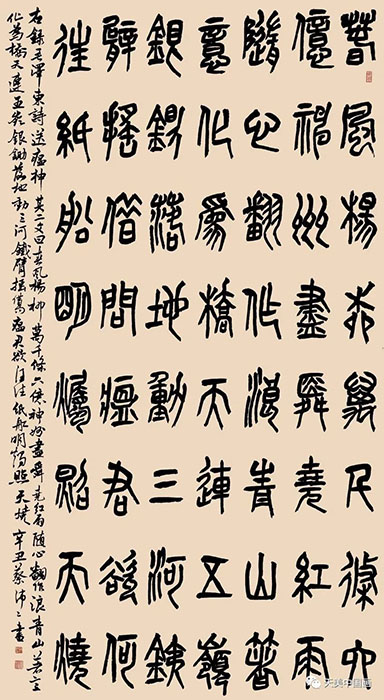 春風楊柳萬千條六
億神州盡舜堯紅雨
隨心翻作浪青山著
意化為橋天連五嶺
銀鋤落地動三河鐵
臂搖借問瘟君欲何
往紙船明燭照天燒
右錄毛澤東詩送瘟神其二文曰春風楊柳萬千條六億神州盡舜堯紅雨隨心翻作浪青山著意
化為橋天連五嶺銀鋤落地動三河鐵臂搖借問瘟君欲何往紙船明燭照天燒辛丑蔡沛之書
天美中国画